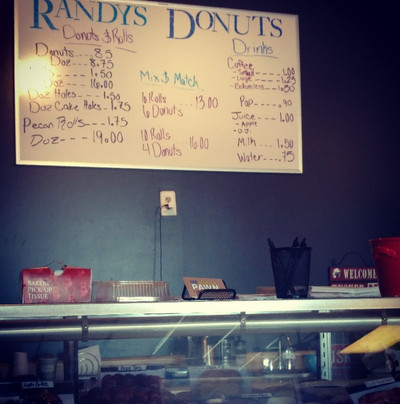 RANDYS DONUTS
Donuts & Rolls
Donuts--- .85
Doz--- 8.75
- - - 1.50
Doz--- 16.00
Doz Holes--- 1.50
Doz Cake Holes-- 1.75
Pecan Rolls--- 1.75
Doz--- 19.00
Mix & Match
6 Rolls
6 Donuts
13.00
Rolls
4 Donuts
16.00
Drinks
Coffee
- Small 1.00
- Large 1.25
- Bottomless 1.50
Pop---- .90
Juice--- 1.00
- Apple
- O.J.
Milk--- 1.50
Water---- .75
BAKERY
PICK-UP
TISSUE
WELCOME